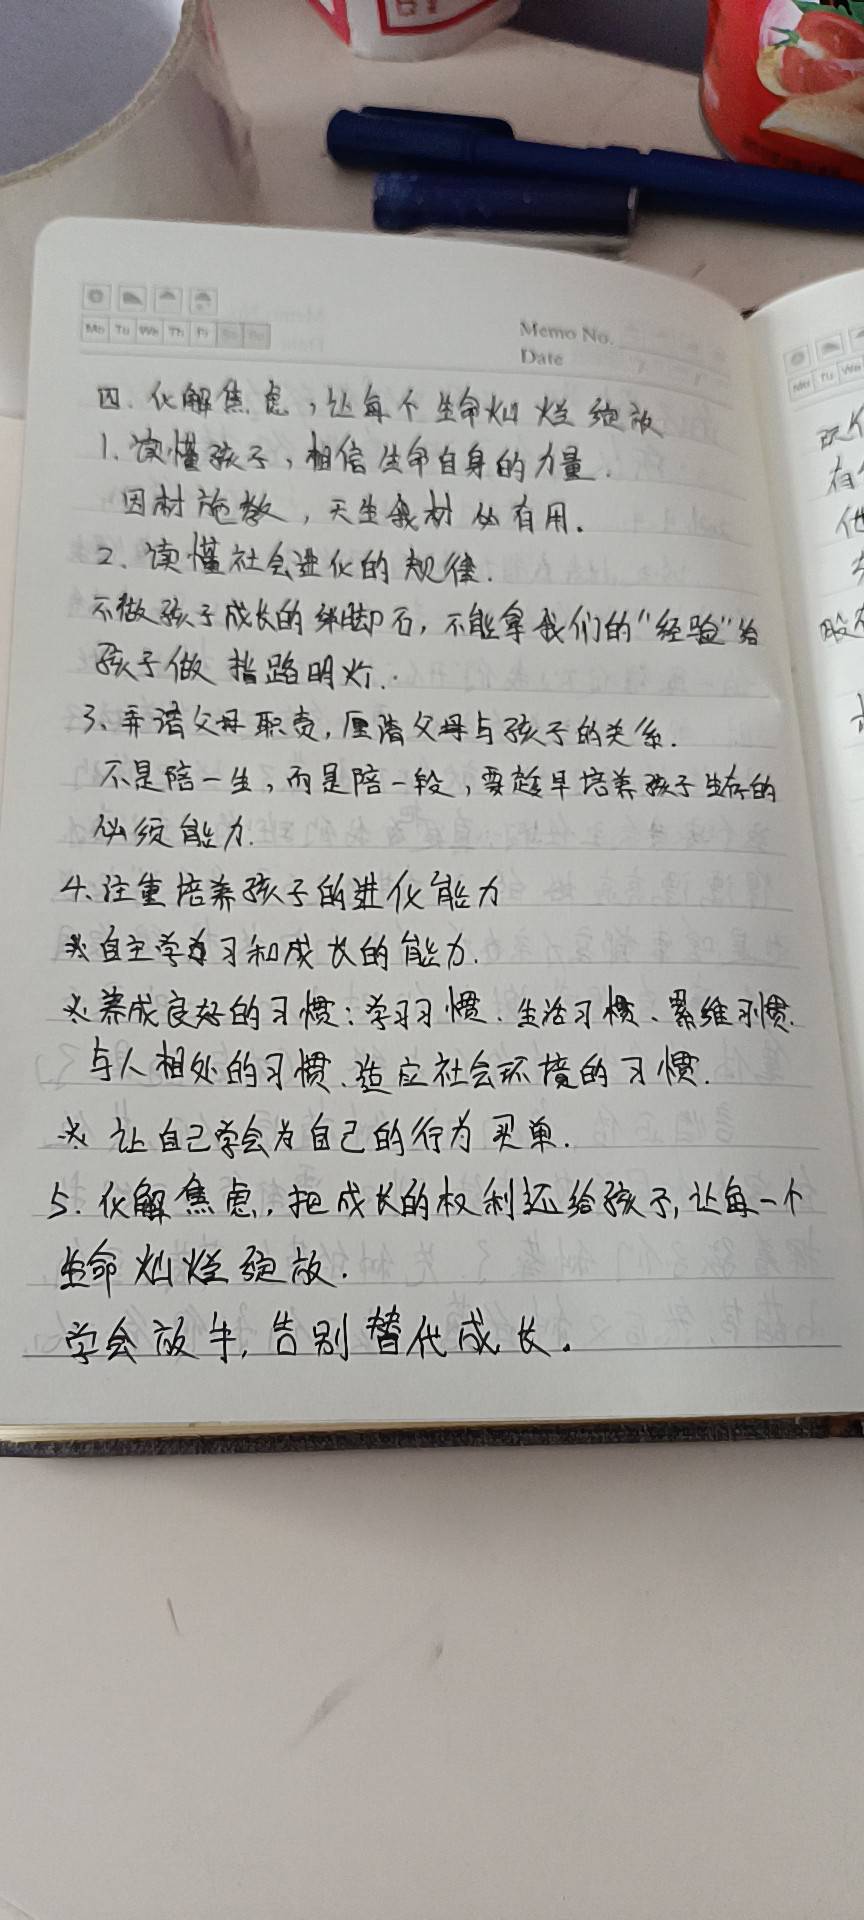 Mo Tu We Th Fr Sa Su
Memo No.
Date
四.化解焦虑,让每个生命灿烂绽放
1.读懂孩子,相信生命自身的力量.
因材施教,天生我材必有用.
2、读懂社会进化的规律.
不做孩子成长的绊脚石,不能拿我们的“经验”给
孩子做指路明灯.
3、弄清父母职责,厘清父母与孩子的关系.
不是陪一生,而是陪一段,要趁早培养孩子生存的
必须能力.
4.注重培养孩子的进化能力
※自主学习和成长的能力.
※养成良好的习惯:学习习惯、生活习惯、思维习惯.
与人相处的习惯、适应社会环境的习惯.
※ 让自己学会为自己的行为买单.
5.化解焦虑,把成长的权利还给孩子,让每一个
生命灿烂绽放.
学会放手,告别替代成长。